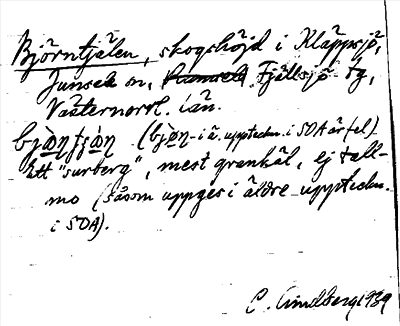 Björntjälen, skogshöjd i Kläppsjö,
Junsele sn, Fjällsjö tg,
Västernorrl. län.
(bjøŋ- i ä. uppteckn. i SOA är fel.)
Ett "surberg", mest grankäl, ej tall-
mo (såsom uppges i äldre uppteckn.
i SOA).
C. Lindberg 1939